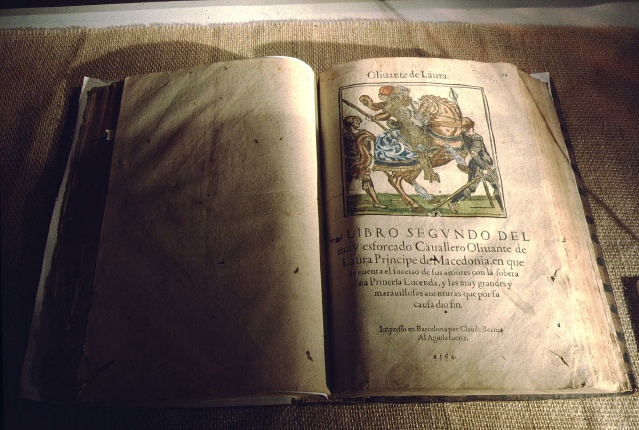 Oliuante de Laura.
LIBRO SEGVNDO DEL
muy esforcado Cauallero Oliuante de
Laura Principe de Macedonia, en que
se cuenta el sucesso de sus amores con la sobera
na Princesa Lucenda, y las muy grandes y
marauillosas auenturas que por su
causa dio fin.
Impresso en Barcelona por Claude Bornat
Al Aguila fuerte.
1564.